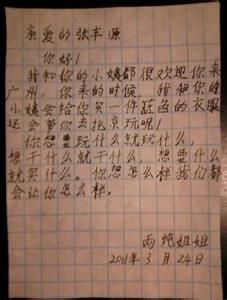 亲爱的张丰源
你好！
我和你的小姨都很欢迎你来
广州，你来的时候，我和你的
小姨会给你买一件蓝色的衣服
还会带你去北京玩呢！
你想要玩什么就玩什么，
想干什么就干什么，想要什么
就买什么。你想怎么样我们都
会让你怎么样。
雨纯姐姐
2011年3月24日